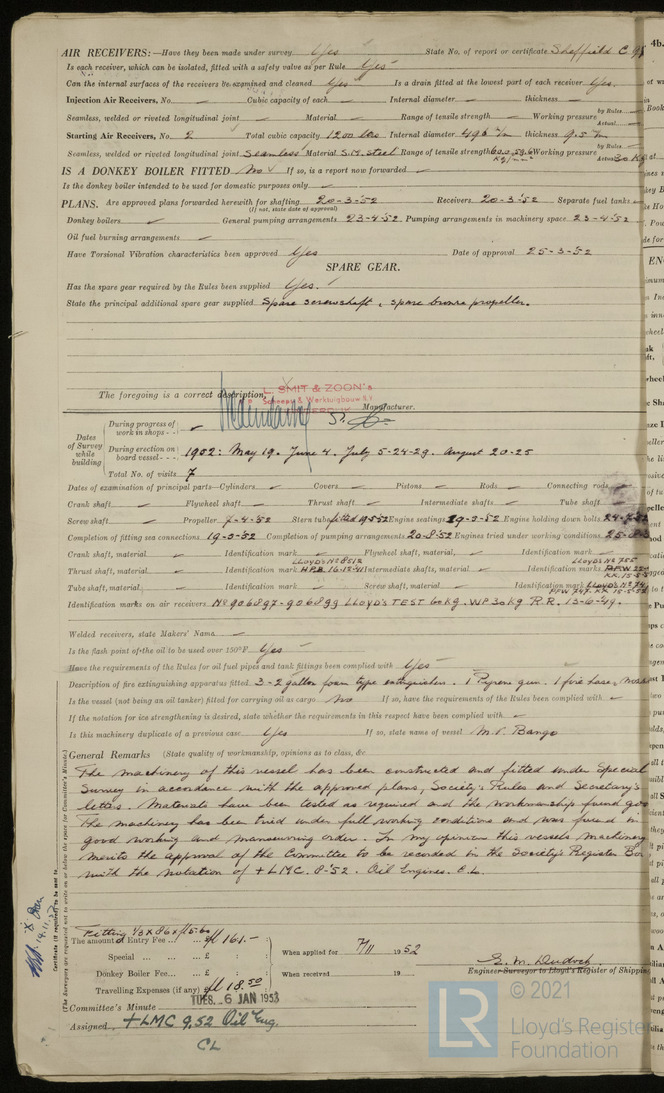 AIR RECEIVERS:—Have they been made under survey Yes State No. of report or certificate Sheffield C
Is each receiver, which can be isolated, fitted with a safety valve as per Rule Yes
Can the internal surfaces of the receivers be examined and cleaned Yes Is a drain fitted at the lowest part of each receiver Yes.
Injection Air Receivers, No. — Cubic capacity of each — Internal diameter — thickness —
Seamless, welded or riveted longitudinal joint — Material — Range of tensile strength — Working pressure by Rules — Actual —
Starting Air Receivers, No. 2 Total cubic capacity 1200 Internal diameter 496 thickness 9.5
Seamless, welded or riveted longitudinal joint Seamless Material S.M. Steel Range of tensile strength Kg/mm² Working pressure by Rules — Actual 30 Kg
IS A DONKEY BOILER FITTED No If so, is a report now forwarded —
Is the donkey boiler intended to be used for domestic purposes only —
PLANS. Are approved plans forwarded herewith for shafting 20-3-52 Receivers 20-3-52 Separate fuel tanks
(If not, state date of approval)
Donkey boilers — General pumping arrangements 23-4-52 Pumping arrangements in machinery space 23-4-52
Oil fuel burning arrangements —
Have Torsional Vibration characteristics been approved Yes Date of approval 25-3-52
SPARE GEAR.
Has the spare gear required by the Rules been supplied Yes.
State the principal additional spare gear supplied Spare screwshaft, spare bronze propeller.
The foregoing is a correct description,
L. SMIT & ZOON's
Scheeps & Werktuigbouw N.V.
Manufacturer.
Dates of Survey while building
During progress of work in shops - - —
During erection on board vessel - - - 1952: May 19. June 4. July 5-24-29. August 20-25
Total No. of visits 7
Dates of examination of principal parts—Cylinders — Covers — Pistons — Rods — Connecting rods
Crank shaft — Flywheel shaft — Thrust shaft — Intermediate shafts — Tube shaft
Screw shaft — Propeller 7-4-52 Stern tube fitted 19-5-52 Engine seatings 29-3-52 Engine holding down bolts
Completion of fitting sea connections 19-3-52 Completion of pumping arrangements 20-8-52 Engines tried under working conditions
Crank shaft, material — Identification mark — Flywheel shaft, material, — Identification mark —
Thrust shaft, material — Identification mark LLOYD'S No 8512 HPB 16-12-41 Intermediate shafts, material — Identification marks LLOYD'S No 755
Tube shaft, material — Identification mark — Screw shaft, material, — Identification mark LLOYD'S No
Identification marks on air receivers No 906897-906899 LLOYD'S TEST 60 KG. WP 30 KG R.R. 13-6-49.
Welded receivers, state Makers' Name —
Is the flash point of the oil to be used over 150°F Yes
Have the requirements of the Rules for oil fuel pipes and tank fittings been complied with Yes
Description of fire extinguishing apparatus fitted 3 - 2 gallon foam type extinguishers. 1 Pyrene gun. 1 fire hose,
Is the vessel (not being an oil tanker) fitted for carrying oil as cargo No If so, have the requirements of the Rules been complied with —
If the notation for ice strengthening is desired, state whether the requirements in this respect have been complied with —
Is this machinery duplicate of a previous case Yes If so, state name of vessel M.V. Bango
General Remarks (State quality of workmanship, opinions as to class, &c
The machinery of this vessel has been constructed and fitted under Special
Survey in accordance with the approved plans, Society's Rules and Secretary's
letters. Materials have been tested as required and the workmanship found
The machinery has been tried under full working conditions and was found in
good working and manoeuvring order. In my opinion this vessels machinery
merits the approval of the Committee to be recorded in the Society's Register
with the notation of + LMC. 8-52. Oil Engines. C.L.
(The Surveyors are requested not to write on or below the space for Committee's Minute.)
Certificate (if required) to be sent to
Fitting
The amount of Entry Fee ... fl 161.-
Special ... £ :
Donkey Boiler Fee... £ :
Travelling Expenses (if any) fl 18.50
When applied for 7/11 1952
When received 19
Engineer Surveyor to Lloyd's Register of Shipping
Committee's Minute TUES. 6 JAN 1953
Assigned + LMC 9,52 Oil Eng.
CL
LR
© 2021
Lloyd's Register
Foundation